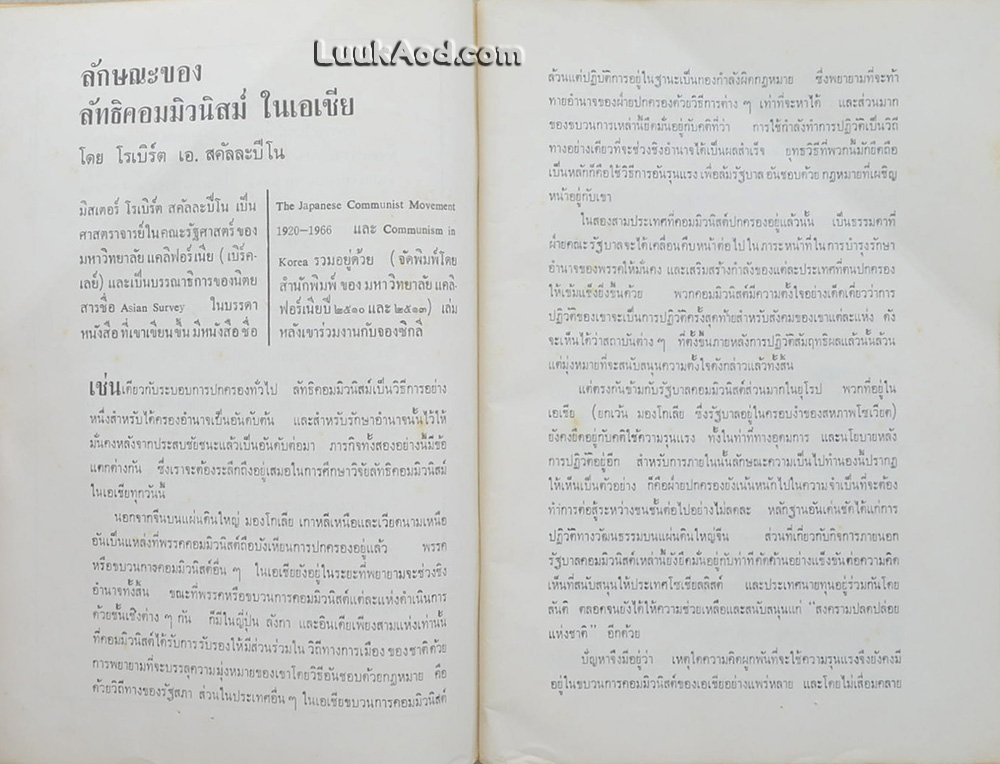 LuukAod.com
ลักษณะของ
ลัทธิคอมมิวนิสม์ ในเอเซีย
โดย โรเบิร์ต เอ. สคัลละปีโน
มิสเตอร์ โรเบิร์ต สคัลละปีโน เป็น
ศาสตราจารย์ในคณะรัฐศาสตร์ของ
มหาวิทยาลัย แคลิฟอร์เนีย ( เบิร์ค-
เลย์) และเป็นบรรณาธิการของนิตย
สารชื่อ Asian Survey ในบรรดา
หนังสือ ที่เขาเขียนขึ้น มีหนังสือ ชื่อ
The Japanese Communist Movement
1920–1966 และ Communism in
Korea รวมอยู่ด้วย (จัดพิมพ์โดย
สำนักพิมพ์ ของ มหาวิทยาลัย แคลิ-
ฟอร์เนียปี ๒๕๑๐ และ ๒๕๑๓) เล่ม
หลังเขาร่วมงานกับจองซิกลี
เช่นเดียวกับระบอบการปกครองทั่วไป ลัทธิคอมมิวนิสม์เป็นวิธีการอย่าง
หนึ่งสำหรับได้ครองอำนาจเป็นอันดับต้น และสำหรับรักษาอำนาจนั้นไว้ให้
มั่นคงหลังจากประสบชัยชนะแล้วเป็นอันดับต่อมา ภารกิจทั้งสองอย่างนี้มีข้อ
แตกต่างกัน ซึ่งเราจะต้องระลึกถึงอยู่เสมอในการศึกษาวิจัยลัทธิคอมมิวนิสม์
ในเอเชียทุกวันนี้
นอกจากจีนบนแผ่นดินใหญ่ มองโกเลีย เกาหลีเหนือและเวียดนามเหนือ
อันเป็นแหล่งที่พรรคคอมมิวนิสต์ถือบังเหียนการปกครองอยู่แล้ว พรรค
หรือขบวนการคอมมิวนิสต์อื่น ๆ ในเอเชียยังอยู่ในระยะที่พยายามจะช่วงชิง
อำนาจทั้งสิ้น ขณะที่พรรคหรือขบวนการคอมมิวนิสต์แต่ละแห่งดำเนินการ
ด้วยชั้นเชิงต่าง ๆ กัน ก็มีในญี่ปุ่น ลังกา และอินเดียเพียงสามแห่งเท่านั้น
ที่คอมมิวนิสต์ได้รับการ รับรองให้มีส่วนร่วมใน วิถีทางการเมือง ของ ชาติ ด้วย
การพยายามที่จะบรรลุความมุ่งหมายของเขาโดยวิธีอันชอบด้วยกฎหมาย คือ
ด้วยวิถีทางของรัฐสภา ส่วนในประเทศอื่น ๆ ในเอเชียขบวนการคอมมิวนิสต์
ล้วนแต่ปฏิบัติการอยู่ในฐานะเป็นกองกำลังผิดกฎหมาย ซึ่งพยายามที่จะท้า
ทายอำนาจของฝ่ายปกครองด้วยวิธีการต่าง ๆ เท่าที่จะหาได้ และส่วนมาก
ของขบวนการเหล่านี้ยึดมั่นอยู่กับคติที่ว่า การใช้กำลังทำการปฏิวัติเป็นวิถี
ทางอย่างเดียวที่จะช่วงชิงอำนาจได้เป็นผลสำเร็จ ยุทธวิธีที่พวกนี้มักยึดถือ
เป็นหลักก็คือใช้วิธีการอันรุนแรง เพื่อล้มรัฐบาล อันชอบด้วย กฎหมายที่เผชิญ
หน้าอยู่กับเขา
ในสองสามประเทศที่คอมมิวนิสต์ปกครองอยู่แล้วนั้น เป็นธรรมดาที่
ฝ่ายคณะ รัฐบาลจะได้เคลื่อนคืบหน้าต่อ ไป ใน ภาระ หน้าที่ ใน การ บำรุงรักษา
อำนาจของพรรคให้มั่นคง และเสริมสร้างกำลังของแต่ละประเทศที่ตนปกครอง
ให้เข้มแข็งยิ่งขึ้นด้วย พวกคอมมิวนิสต์มีความตั้งใจอย่างเด็ดเดี่ยวว่าการ
ปฏิวัติของเขาจะเป็นการปฏิวัติครั้งสุดท้ายสำหรับสังคมของเขาแต่ละแห่ง ดัง
จะเห็นได้ว่าสถาบันต่าง ๆ ที่ตั้งขึ้นภายหลังการปฏิวัติสัมฤทธิผลแล้วนั้นล้วน
แต่มุ่งหมายที่จะสนับสนุนความตั้งใจดังกล่าวแล้วทั้งสิ้น
แต่ตรงกันข้ามกับรัฐบาลคอมมิวนิสต์ส่วนมากในยุโรป พวกที่อยู่ใน
เอเชีย (ยกเว้น มองโกเลีย ซึ่งรัฐบาลอยู่ในครอบงำของสหภาพโซเวียต)
ยังคงยึดอยู่กับคติใช้ความรุนแรง ทั้งในท่าที่ทางอุดมการ และนโยบายหลัง
การปฏิวัติอยู่อีก สำหรับการภายในนั้นลักษณะความเป็นไปทำนองนี้ปรากฏ
ให้เห็นเป็นตัวอย่าง ก็คือฝ่ายปกครองยังเน้นหนักไปในความจำเป็นที่จะต้อง
ทำการต่อสู้ระหว่างชนชั้นต่อไปอย่างไม่ลดละ หลักฐานอันเด่นชัดได้แก่การ
ปฏิวัติทางวัฒนธรรมบนแผ่นดินใหญ่จีน ส่วนที่เกี่ยวกับกิจการภายนอก
รัฐบาลคอมมิวนิสต์เหล่านี้ยังยึดมั่นอยู่กับท่าทีคัดค้านอย่างแข็งขันต่อความคิด
เห็นที่สนับสนุนให้ประเทศโซเชียลลิสต์ และประเทศนายทุนอยู่ร่วมกันโดย
สันติ ตลอดจนยังได้ให้ความช่วยเหลือและสนับสนุนแก่ "สงครามปลดปล่อย
แห่งชาติ" อีกด้วย
ปัญหาจึงมีอยู่ว่า เหตุใดความคิดผูกพันที่จะใช้ความรุนแรงจึงยังคงมี
อยู่ในขบวนการคอมมิวนิสต์ของเอเชียอย่างแพร่หลาย และโดยไม่เสื่อมคลาย